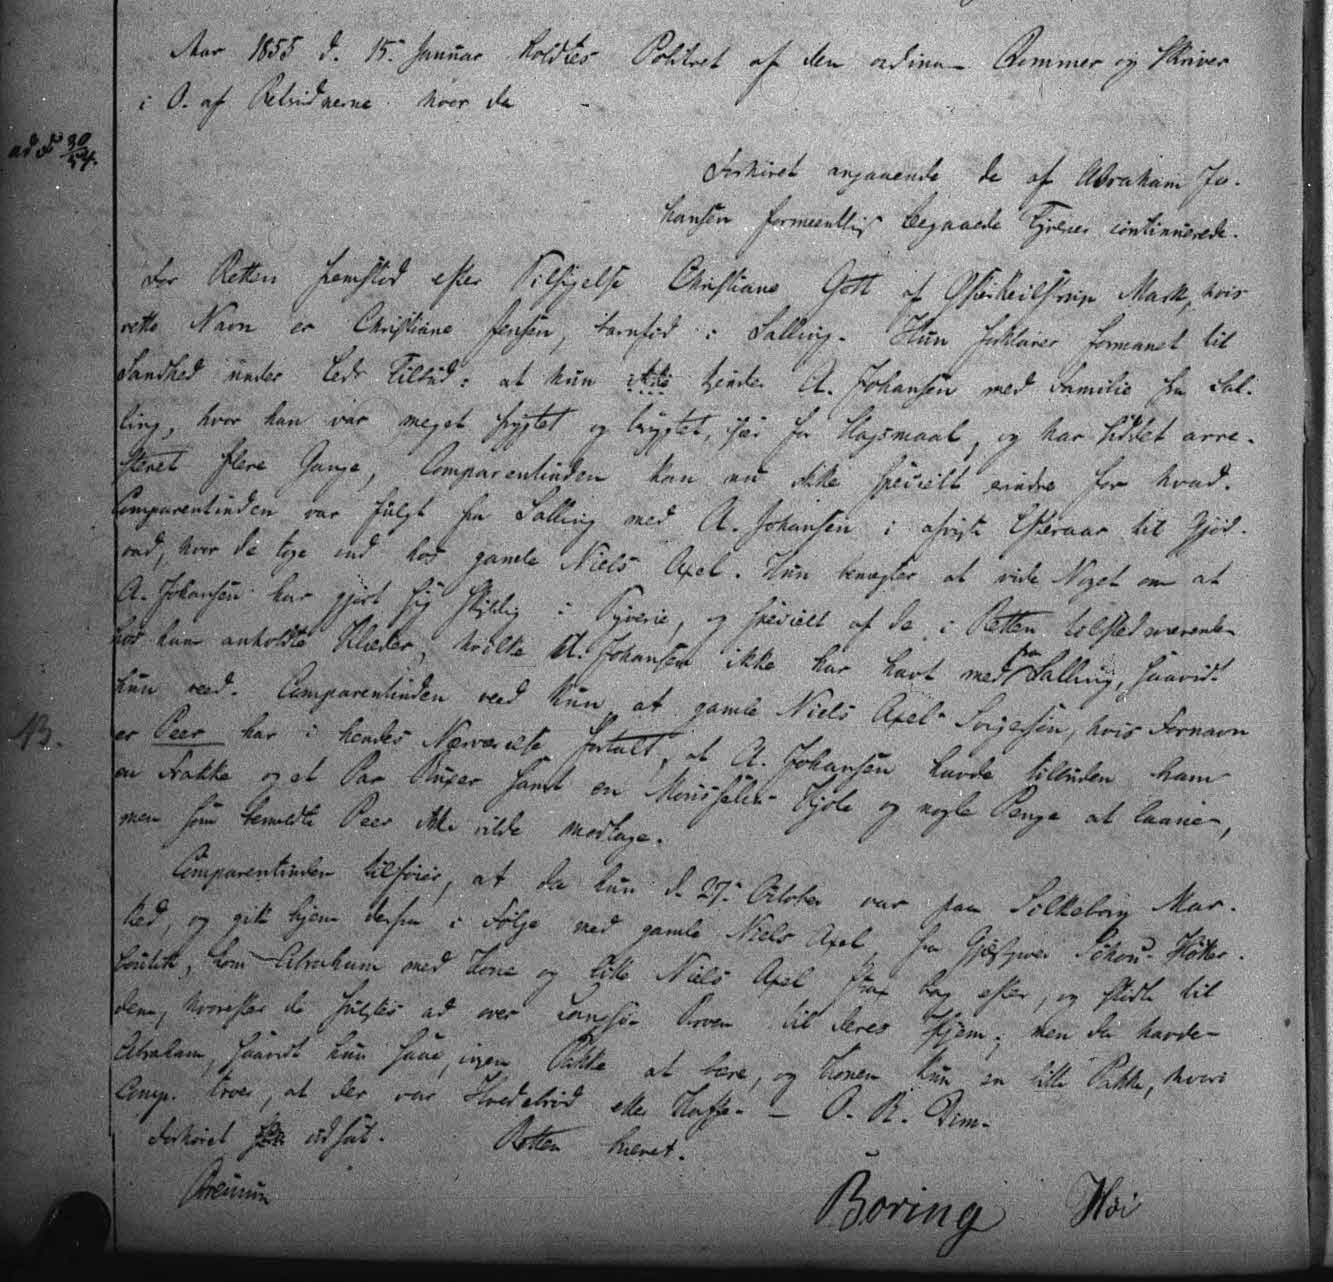 Aar 1855 d. 15. Januar holdtes Politret af den ordinære Dommer og Skriver
i O. af Retsvidnerne hvor da
ad F 30/54.
Forhøret angaaende de af Abraham Jo-
hansen formeentlig begaaede Tyverier continuerede.
For Retten fremstod efter Tilsigelse Christiane Gott af Mark, hvis
rette Navn er Christiane Jensen, barnfød i Salling. Hun forklarer formanet til
Sandhed under Eeds Tilbud: at hun ikke kjender A. Johansen med Familie fra Sal-
ling, hvor han var meget frygtet og berygtet, især for Slagsmaal, og har siddet arre-
steret flere Gange, Comparentinden kan nu ikke specielt erindre for hvad.
Comparentinden var fulgt fra Salling med A. Johansen i afvigte Efteraar til Gjød-
vad, hvor de toge ind hos gamle Niels Axel. Hun benægter at vide Noget om at
A. Johansen har gjort sig skyldig i Tyverie, og specielt af de i Retten tilstedværende
hos ham anholdte Klæder, hvilke A. Johansen ikke har havt med fra Salling, saavidt
hun veed. Comparentinden veed kun at gamle Niels Axel Sørgesen, hvis Fornavn
er Peer har i hendes Nærværelse fortalt, at A. Johansen havde tilbuden ham
en Frakke og et Par Buxer samt en Mousselins Kjole og nogle Penge at laane,
men som bemeldte Peer ikke vilde modtage.
Comparentinden tilføier, at da hun d. 27. October var paa Silkeborg Mar-
ked, og gik hjem derfra i Følge med gamle Niels Axel, fra Gjæstgiver Schou's Høker-
boutik, kom Abraham med Kone og lille Niels Axel strax bag efter, og stødte til
dem, hvorefter de fulgtes ad over Langsø Broen til deres Hjem; men da havde
Abraham, saavidt hun saae, ingen Pakke at bære, og Konen kun en lille Pakke, hvori
Comp. troer, at der var Hvedebrød eller Kaffe. — O. R. Dim.
Forhøret udsat. Retten hævet.
Boring